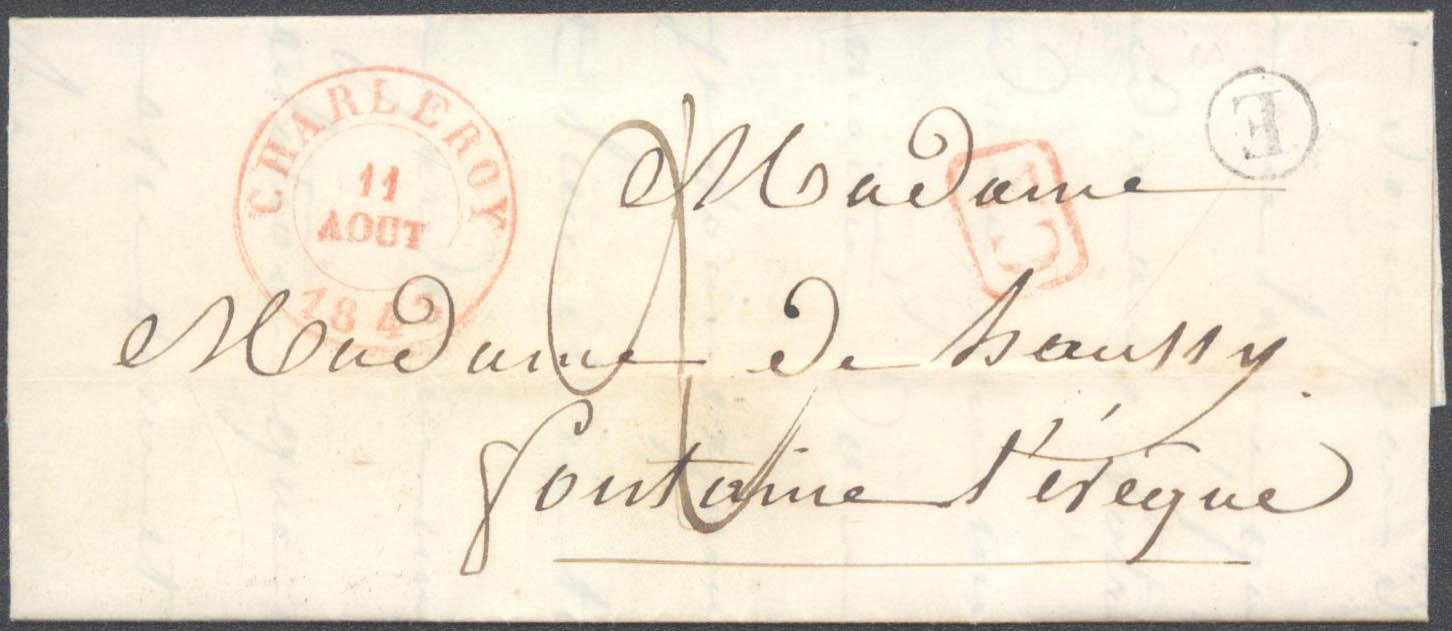 CHARLEROY
11
AOUT
184
E
Madame
Madame de haussy
fontaine l'évêque